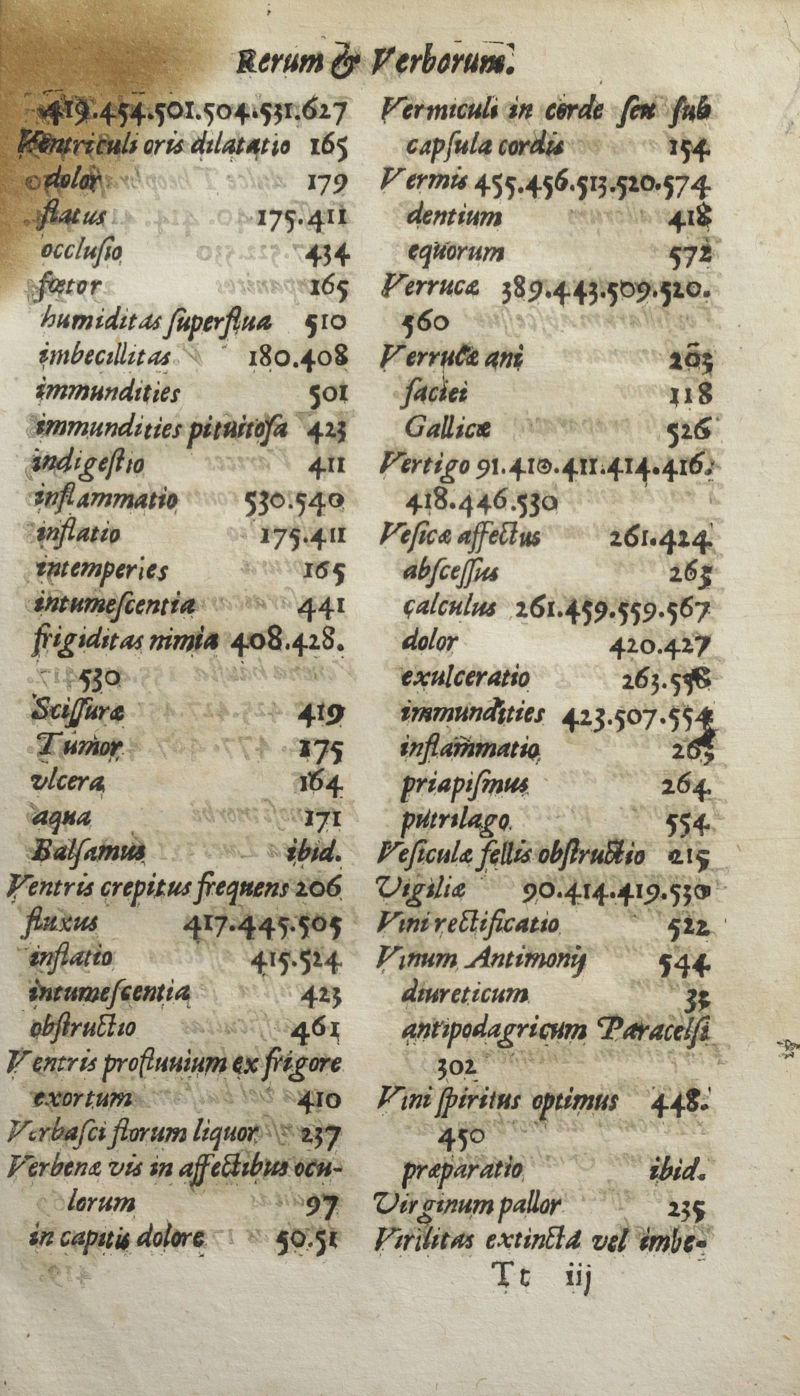 Rerum & Verborum.
419.454.501.504.531.627
Ventriculi oris dilatatio 165
dolor 179
flatus 175.411
occluſio 434
fœtor 165
humiditas ſuperflua 510
imbecillitas 180.408
immundities 501
immundities pituitoſa 423
indigeſtio 411
inflammatio 530.540
inflatio 175.411
intemperies 165
intumeſcentia 441
frigiditas nimia 408.428.
530
Sciſſuræ 419
Tumor 175
vlcera 164
aqua 171
Balſamus ibid.
Ventris crepitus frequens 206
fluxus 417.445.505
inflatio 415.524
intumeſcentia 423
obſtructio 461
Ventris profluuium ex frigore
exortum 410
Verbaſci florum liquor 237
Verbenæ vis in affectibus ocu-
lorum 97
in capitis dolore 50.51
Vermiculi in corde ſeu ſub
capſula cordis 154
Vermis 455.456.513.520.574
dentium 418
equorum 572
Verrucæ 389.443.509.520.
560
Verrucæ ani 203
faciei 118
Gallicæ 526
Vertigo 91.410.411.414.416.
418.446.530
Veſicæ affectus 261.424
abſceſſus 263
calculus 261.459.559.567
dolor 420.427
exulceratio 263.558
immundities 423.507.554
inflammatio 263
priapiſmus 264
putrilago 554
Veſiculæ fellis obſtructio 215
Vigiliæ 90.414.419.530
Vini rectificatio 522
Vinum Antimonij 544
diureticum 35
antipodagricum Paracelſi
302
Vini ſpiritus optimus 448.
450
præparatio ibid.
Virginum pallor 235
Virilitas extincta vel imbe-
Tt iij